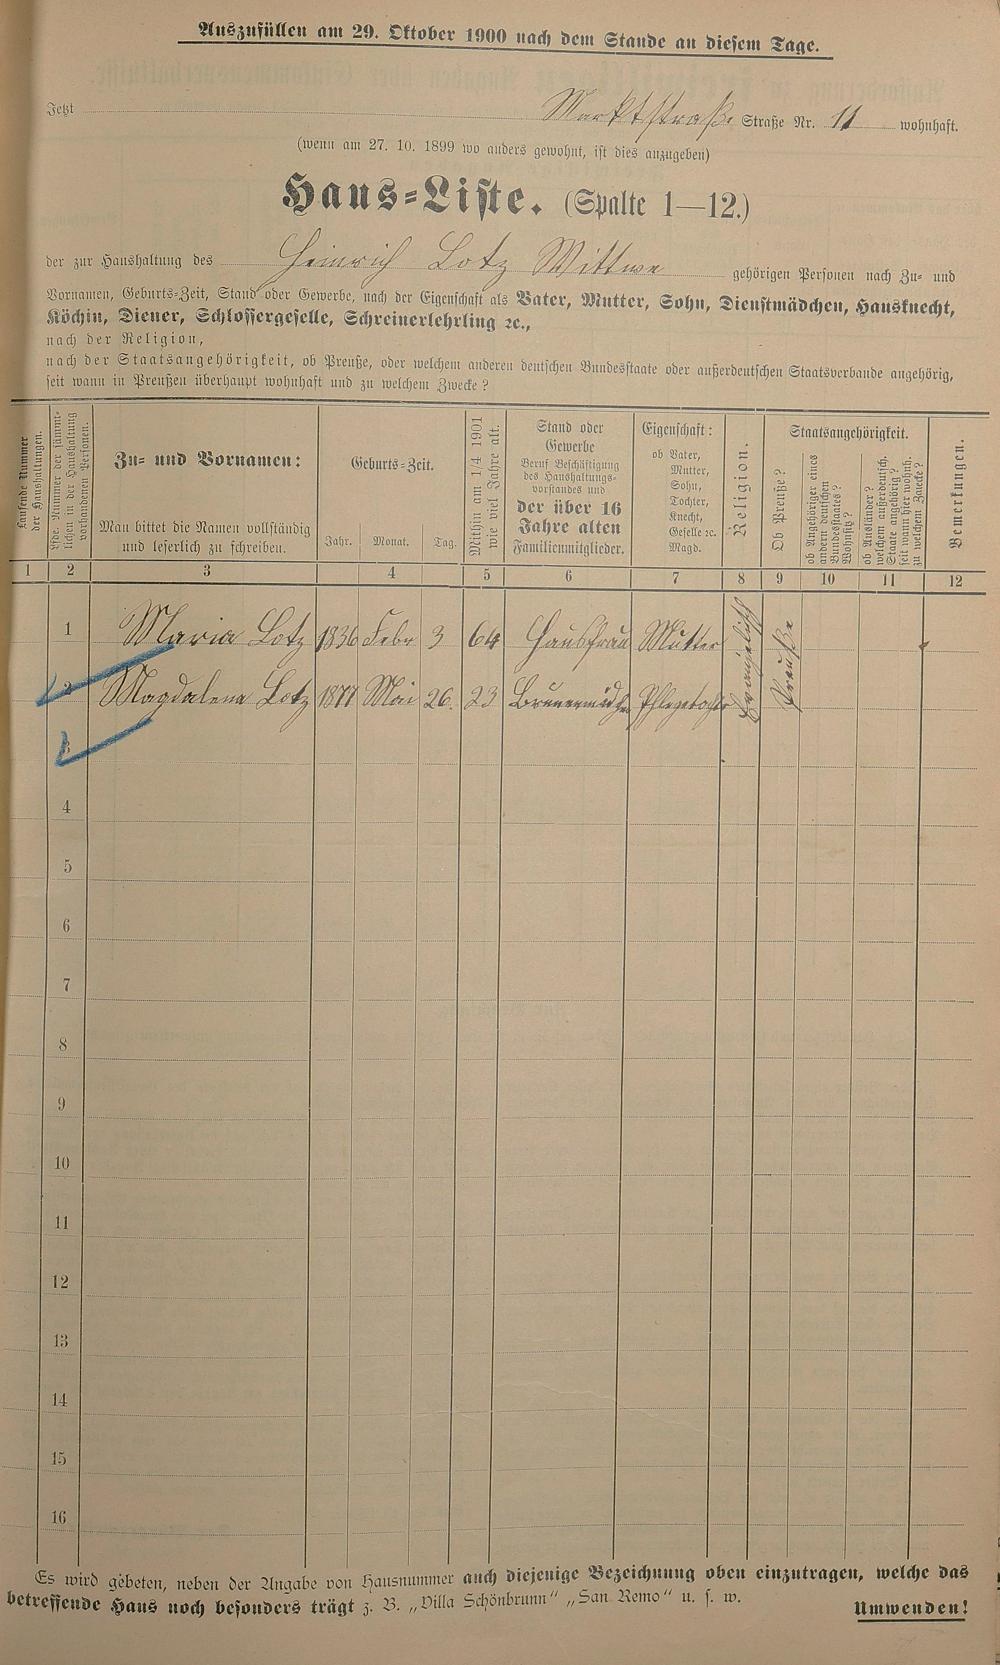 Auszufüllen am 29. Oktober 1900 nach dem Stande an diesem Tage.
Jetzt Marktstraße Straße Nr. 11 wohnhaft.
(wenn am 27. 10. 1899 wo anders gewohnt, ist dies anzugeben)
Haus-Liste. (Spalte 1—12.)
der zur Haushaltung des Heinrich Lotz Wittwe gehörigen Personen nach Zu- und
Vornamen, Geburts-Zeit, Stand oder Gewerbe, nach der Eigenschaft als Vater, Mutter, Sohn, Dienstmädchen, Hausknecht,
Köchin, Diener, Schlossergeselle, Schreinerlehrling ꝛc.,
nach der Religion,
nach der Staatsangehörigkeit, ob Preuße, oder welchem anderen deutschen Bundesstaate oder außerdeutschen Staatsverbande angehörig,
seit wann in Preußen überhaupt wohnhaft und zu welchem Zwecke?
Laufende Nummer
der Haushaltungen.
Lfde. Nummer der sämmt-
lichen in der Haushaltung
vorhandenen Personen.
Zu- und Vornamen:
Man bittet die Namen vollständig
und leserlich zu schreiben.
Geburts-Zeit.
Jahr. Monat. Tag.
Mithin am 1/4 1901
wie viel Jahre alt.
Stand oder
Gewerbe
Beruf Beschäftigung
des Haushaltungs-
vorstandes und
der über 16
Jahre alten
Familienmitglieder.
Eigenschaft:
ob Vater,
Mutter,
Sohn,
Tochter,
Knecht,
Geselle ꝛc.
Magd.
Religion.
Staatsangehörigkeit.
Ob Preuße?
ob Angehöriger eines
andern deutschen
Bundesstaates?
Wohnsitz?
ob Ausländer?
welchem außerdeutsch.
Staate angehörig?
seit wann hier wohnh.
zu welchem Zwecke?
Bemerkungen.
1 2 3 4 5 6 7 8 9 10 11 12
1 Maria Lotz 1836 Febr 3 64 Hausfrau Mutter Evangelisch Preuße
2 Magdalena Lotz 1877 Mai 26. 23 Pflegetochter
3
4
5
6
7
8
9
10
11
12
13
14
15
16
Es wird gebeten, neben der Angabe von Hausnummer auch diejenige Bezeichnung oben einzutragen, welche das
betreffende Haus noch besonders trägt z. B. „Villa Schönbrunn“ „San Remo“ u. s. w.
Umwenden!